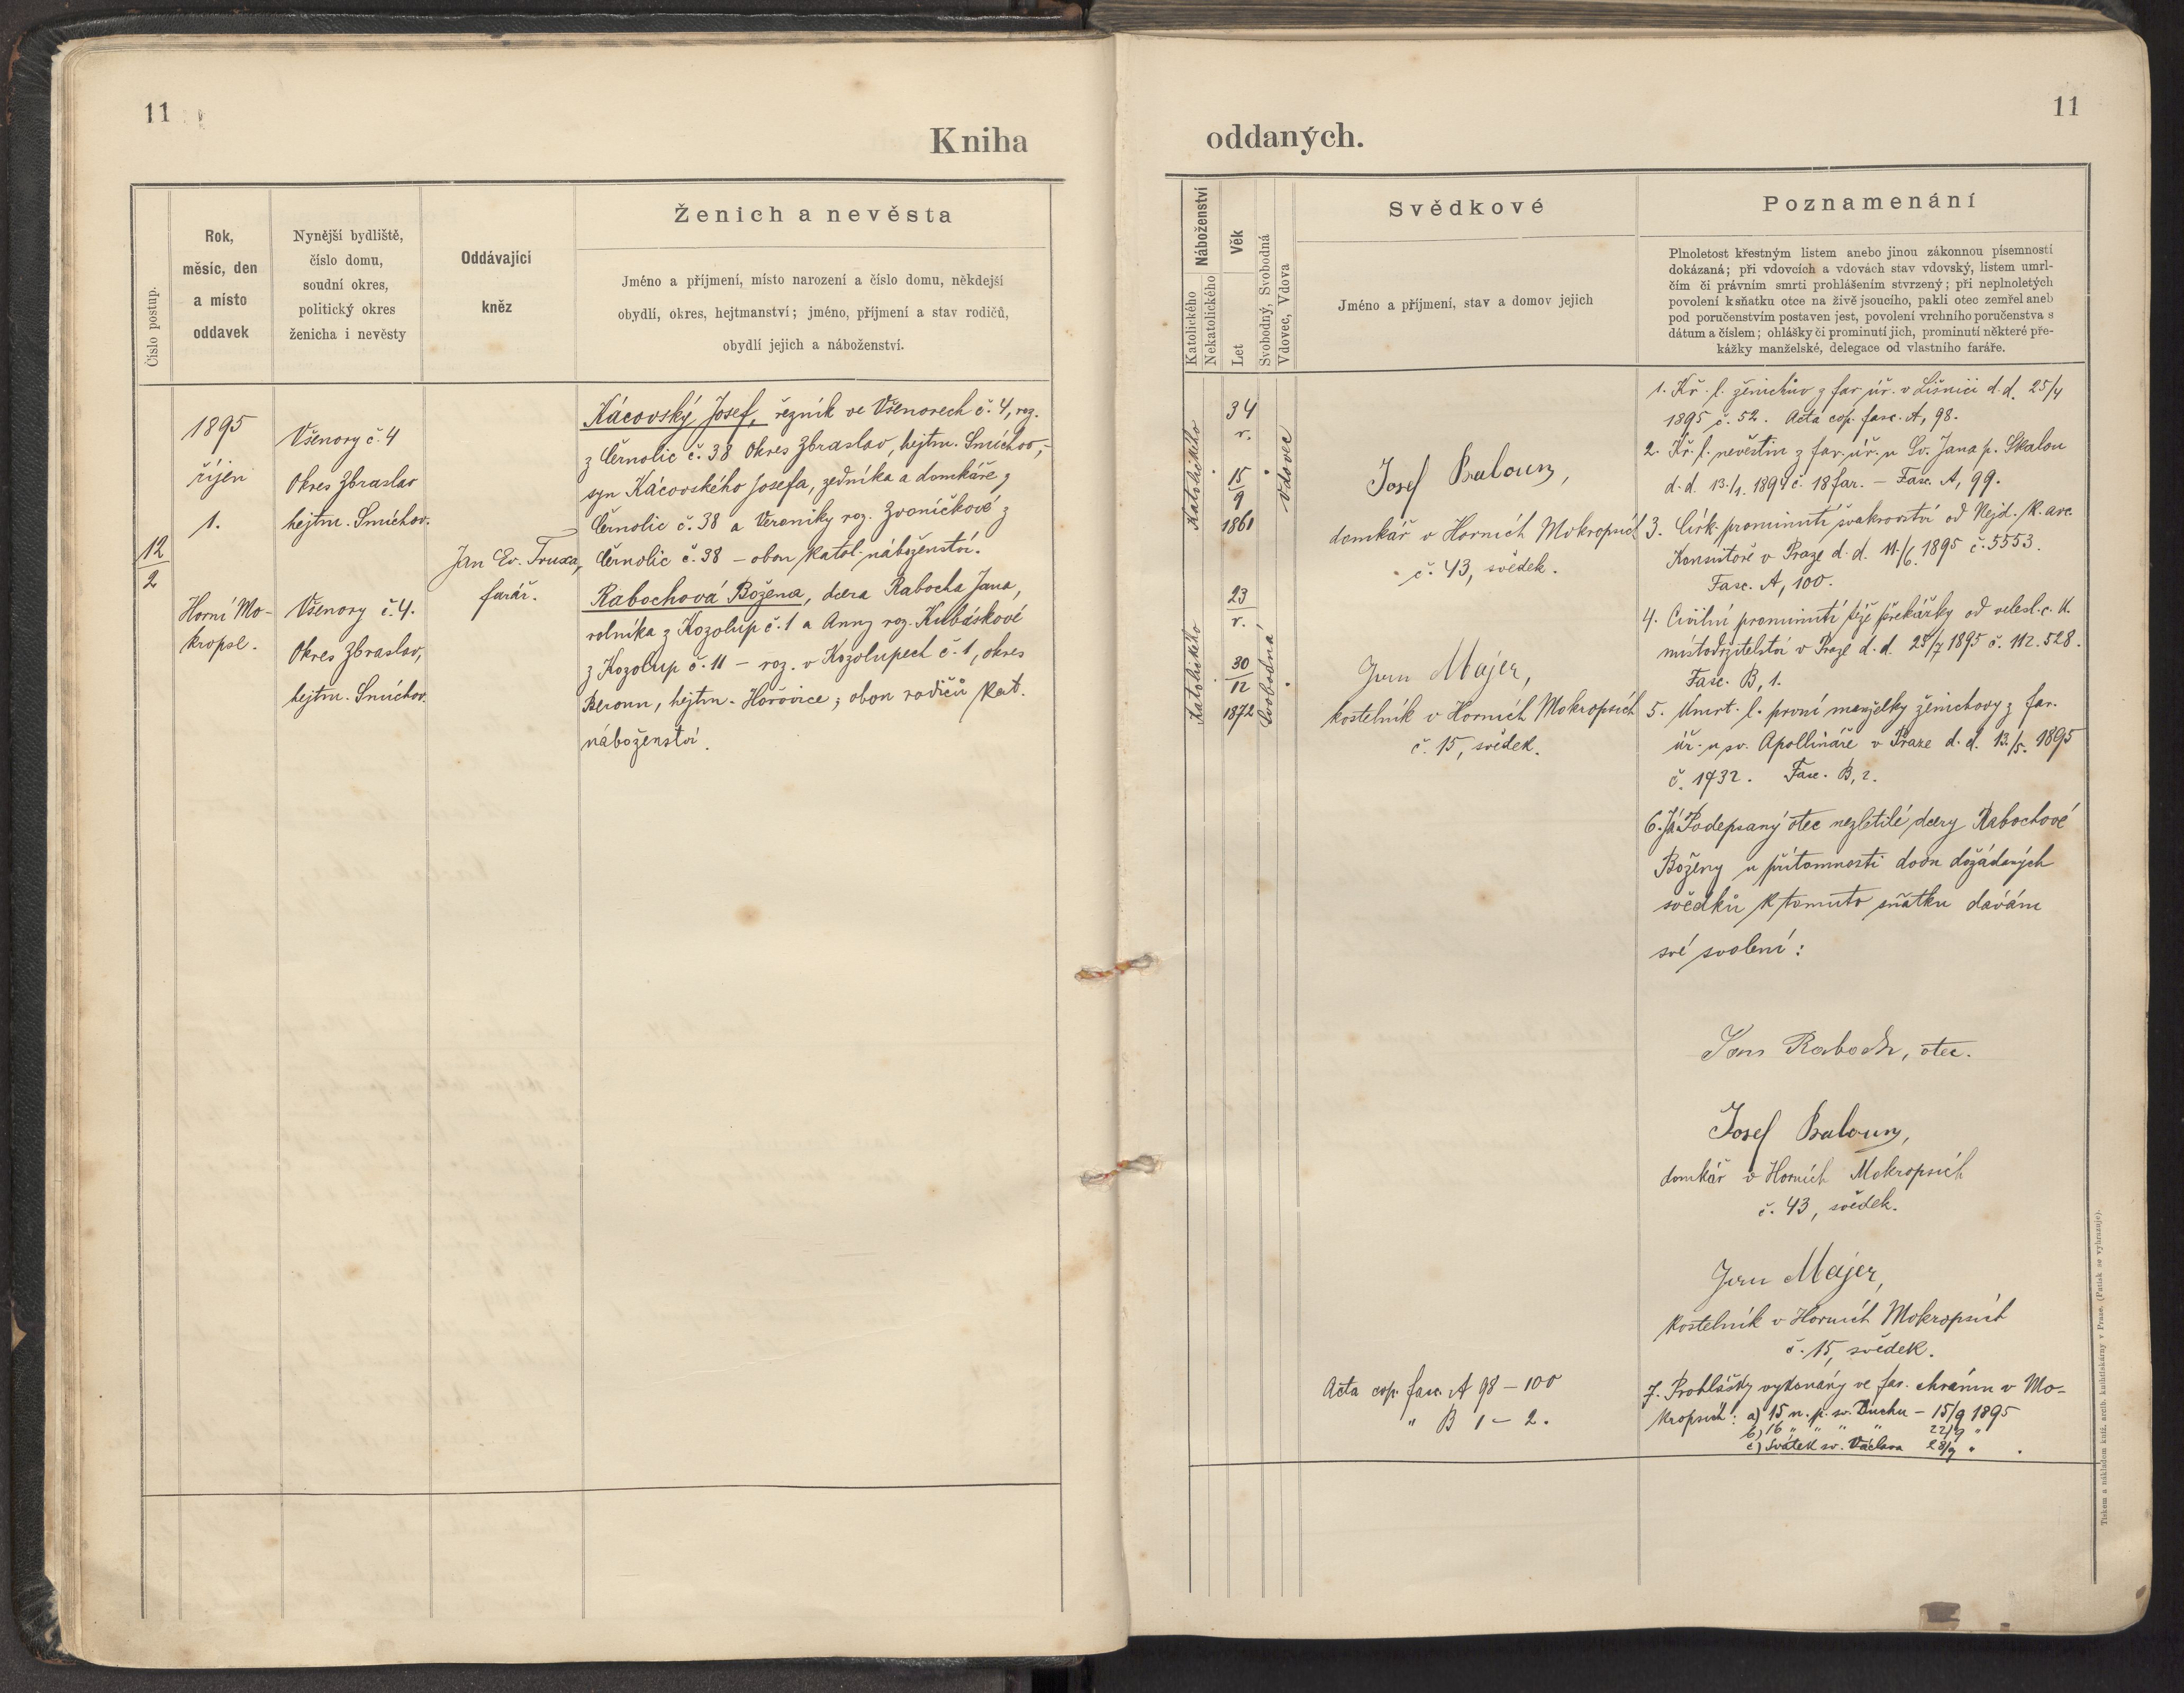 11
Kniha
Číslo postup.
Rok,
měsíc, den
a místo
oddavek
Nynější bydliště,
číslo domu,
soudní okres,
politický okres
ženicha i nevěsty
Oddávající
kněz
Ženich a nevěsta
Jméno a příjmení, místo narození a číslo domu, někdejší
obydlí, okres, hejtmanství; jméno, příjmení a stav rodičů,
obydlí jejich a náboženství.
12
2
1895
říjen
1.
Horní Mo-
kropsl.
Všenory č. 4
Okres Zbraslav
hejtm. Smíchov.
Všenory č. 4.
Okres Zbraslav,
hejtm. Smíchov.
Jan Ev. Truxa,
farář.
Kácovský Josef, řezník ve Všenorech č. 4, roz.
z Černolic č. 38 Okres Zbraslav, hejtm. Smíchov,-
syn Kácovského Josefa, zedníka a domkáře z
Černolic č. 38 a Veroniky roz. Zvoníčkové z
Černolic č. 38 – obou katol. náboženství.
Rabochová Božena, dcera Rabocha Jana,
rolníka z Kozolup č. 1 a Anny roz. Kubáskové
z Kozolup č. 11 – roz. v Kozolupech č. 1, okres
Beroun, hejtm. Hořovice; obou rodičů kat.
náboženství.
11
oddaných.
Náboženství
Katolického
Nekatolického
Věk
Let
Svobodný, Svobodná
Vdovec, Vdova
Svědkové
Jméno a příjmení, stav a domov jejich
Poznamenání
Plnoletost křestným listem anebo jinou zákonnou písemností
dokázaná; při vdovcích a vdovách stav vdovský, listem umrl-
čím či právním smrti prohlášením stvrzený; při neplnoletých
povolení k sňatku otce na živě jsoucího, pakli otec zemřel aneb
pod poručenstvím postaven jest, povolení vrchního poručenstva s
dátum a číslem; ohlášky či prominutí jich, prominutí některé pře-
kážky manželské, delegace od vlastního faráře.
Katolického
34
r.
15
9
1861
Vdovec
Katolického
23
r.
30
12
1872
Svobodná
Josef Baloun,
domkář v Horních Mokropsích
č. 43, svědek.
Jan Majer,
kostelník v Horních Mokropsích
č. 15, svědek.
Acta cop. fasc. A 98 – 100
" B 1 – 2.
1. Kř. l. ženichův z far. úř. v Líšnici d. d. 25/4
1895 č. 52. Acta cop. fasc. A, 98.
2. Kř. l. nevěstin z far. úř. u Sv. Jana p. Skalou
d. d. 13./1. 1894 č. 18 far. – Fasc. A, 99.
3. Círk. prominutí švakrovství od Nejd. k. arc.
Konsistoře v Praze d. d. 11./6. 1895 č. 5553.
Fasc. A, 100.
4. Civilní prominutí téže překážky od velesl. c. k.
místodržitelství v Praze d. d. 25/7 1895 č. 112.528.
Fasc. B, 1.
5. Úmrt. l. první manželky ženichovy z far.
úř. u sv. Apollináře v Praze d. d. 13./5. 1895
č. 1732. Fasc. B, 2.
6. Já Podepsaný otec nezletilé dcery Rabochové
Boženy u přítomnosti dvou dožádaných
svědků k tomuto sňatku dávám
své svolení:
Jan Raboch, otec.
Josef Baloun,
domkář v Horních Mokropsích
č. 43, svědek.
Jan Majer,
kostelník v Horních Mokropsích
č. 15, svědek.
7. Prohlášky vykonány ve far. chrámu v Mo-
kropsích: a) 15 n. p. sv. Duchu – 15/9 1895
b) 16 " " " " 22/9 "
c) Svátek sv. Václava 28/9 " .
Tiskem a nákladem kníž. arcib. knihtiskárny v Praze. (Patisk se vyhrazuje).